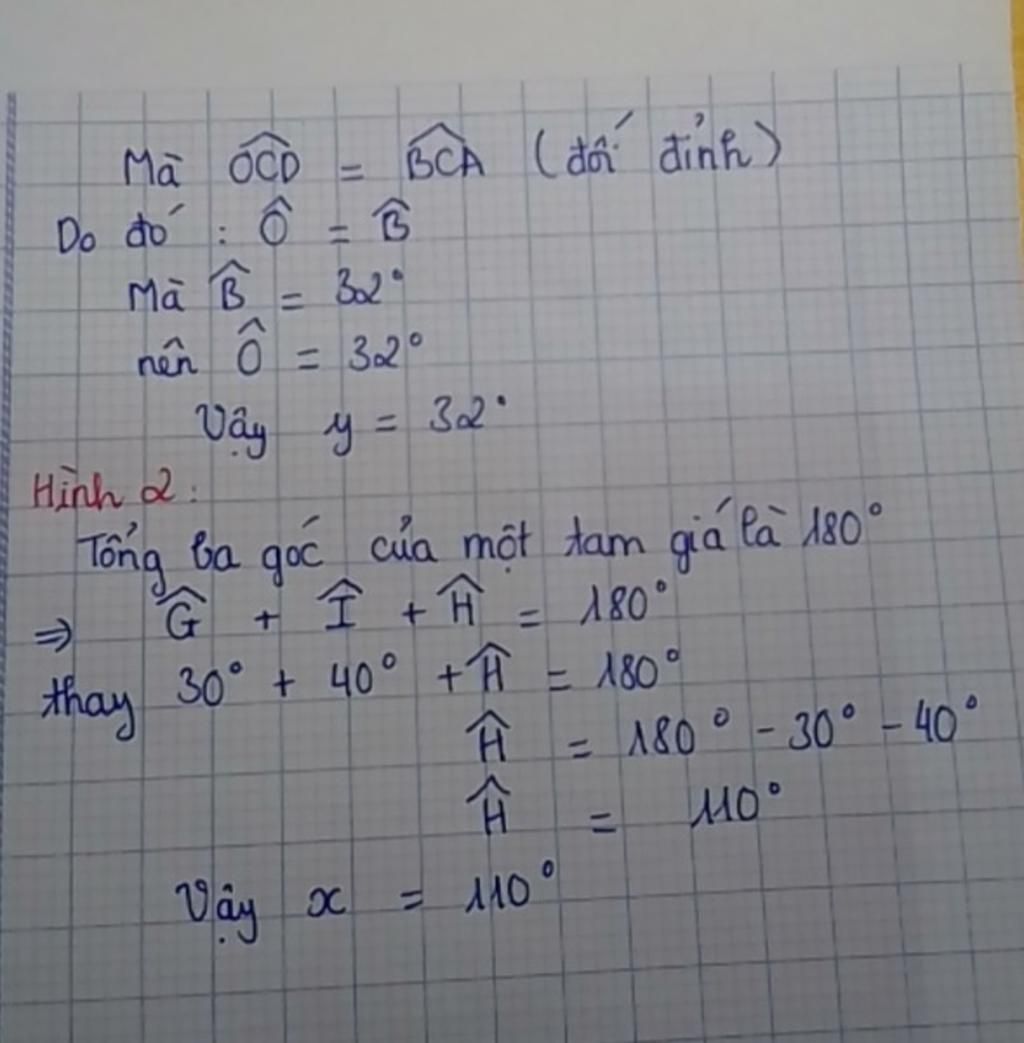 Mà \widehat{OCD} = \widehat{BCA} (đối đỉnh)
Do đó : \widehat{O} = \widehat{B}
Mà \widehat{B} = 32°
nên \widehat{O} = 32°
Vậy y = 32°
Hình 2:
Tổng ba góc của một tam giá là 180°
⇒ \widehat{G} + \widehat{I} + \widehat{H} = 180°
thay 30° + 40° + \widehat{H} = 180°
\widehat{H} = 180° - 30° - 40°
\widehat{H} = 110°
Vậy x = 110°